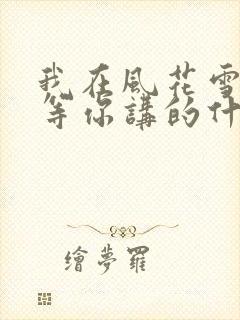 我在風花雪
等你講的什
繪夢羅